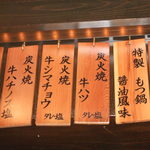 特製 もつ鍋
醤油風味
炭火焼
牛ハツ
タレ・塩
炭火焼
牛シマチョウ
タレ・塩
炭火焼
牛ハチノス 塩